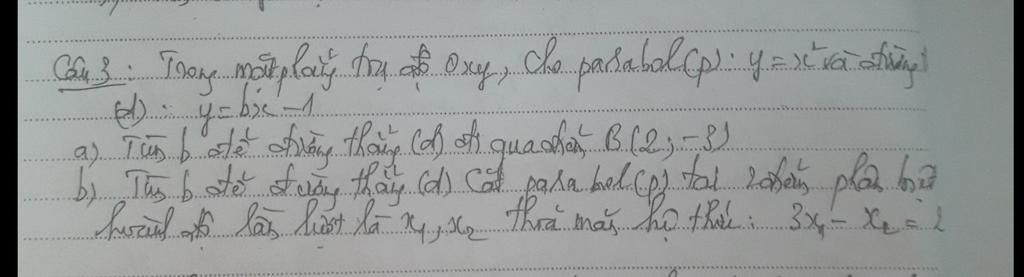 Câu 3: Trong mặt phẳng trục độ Oxy, Cho parabol (p): y = x² và đường
(d): y = bx - 1
a) Tìm b để đường thẳng (d) đi qua điểm B (2; -3)
b) Tìm b để đường thẳng (d) Cắt parabol (p) tại 2 điểm phân biệt
hoành độ lần lượt là x₁, x₂ thoả mãn hệ thức: 3x₁ - x₂ = 2